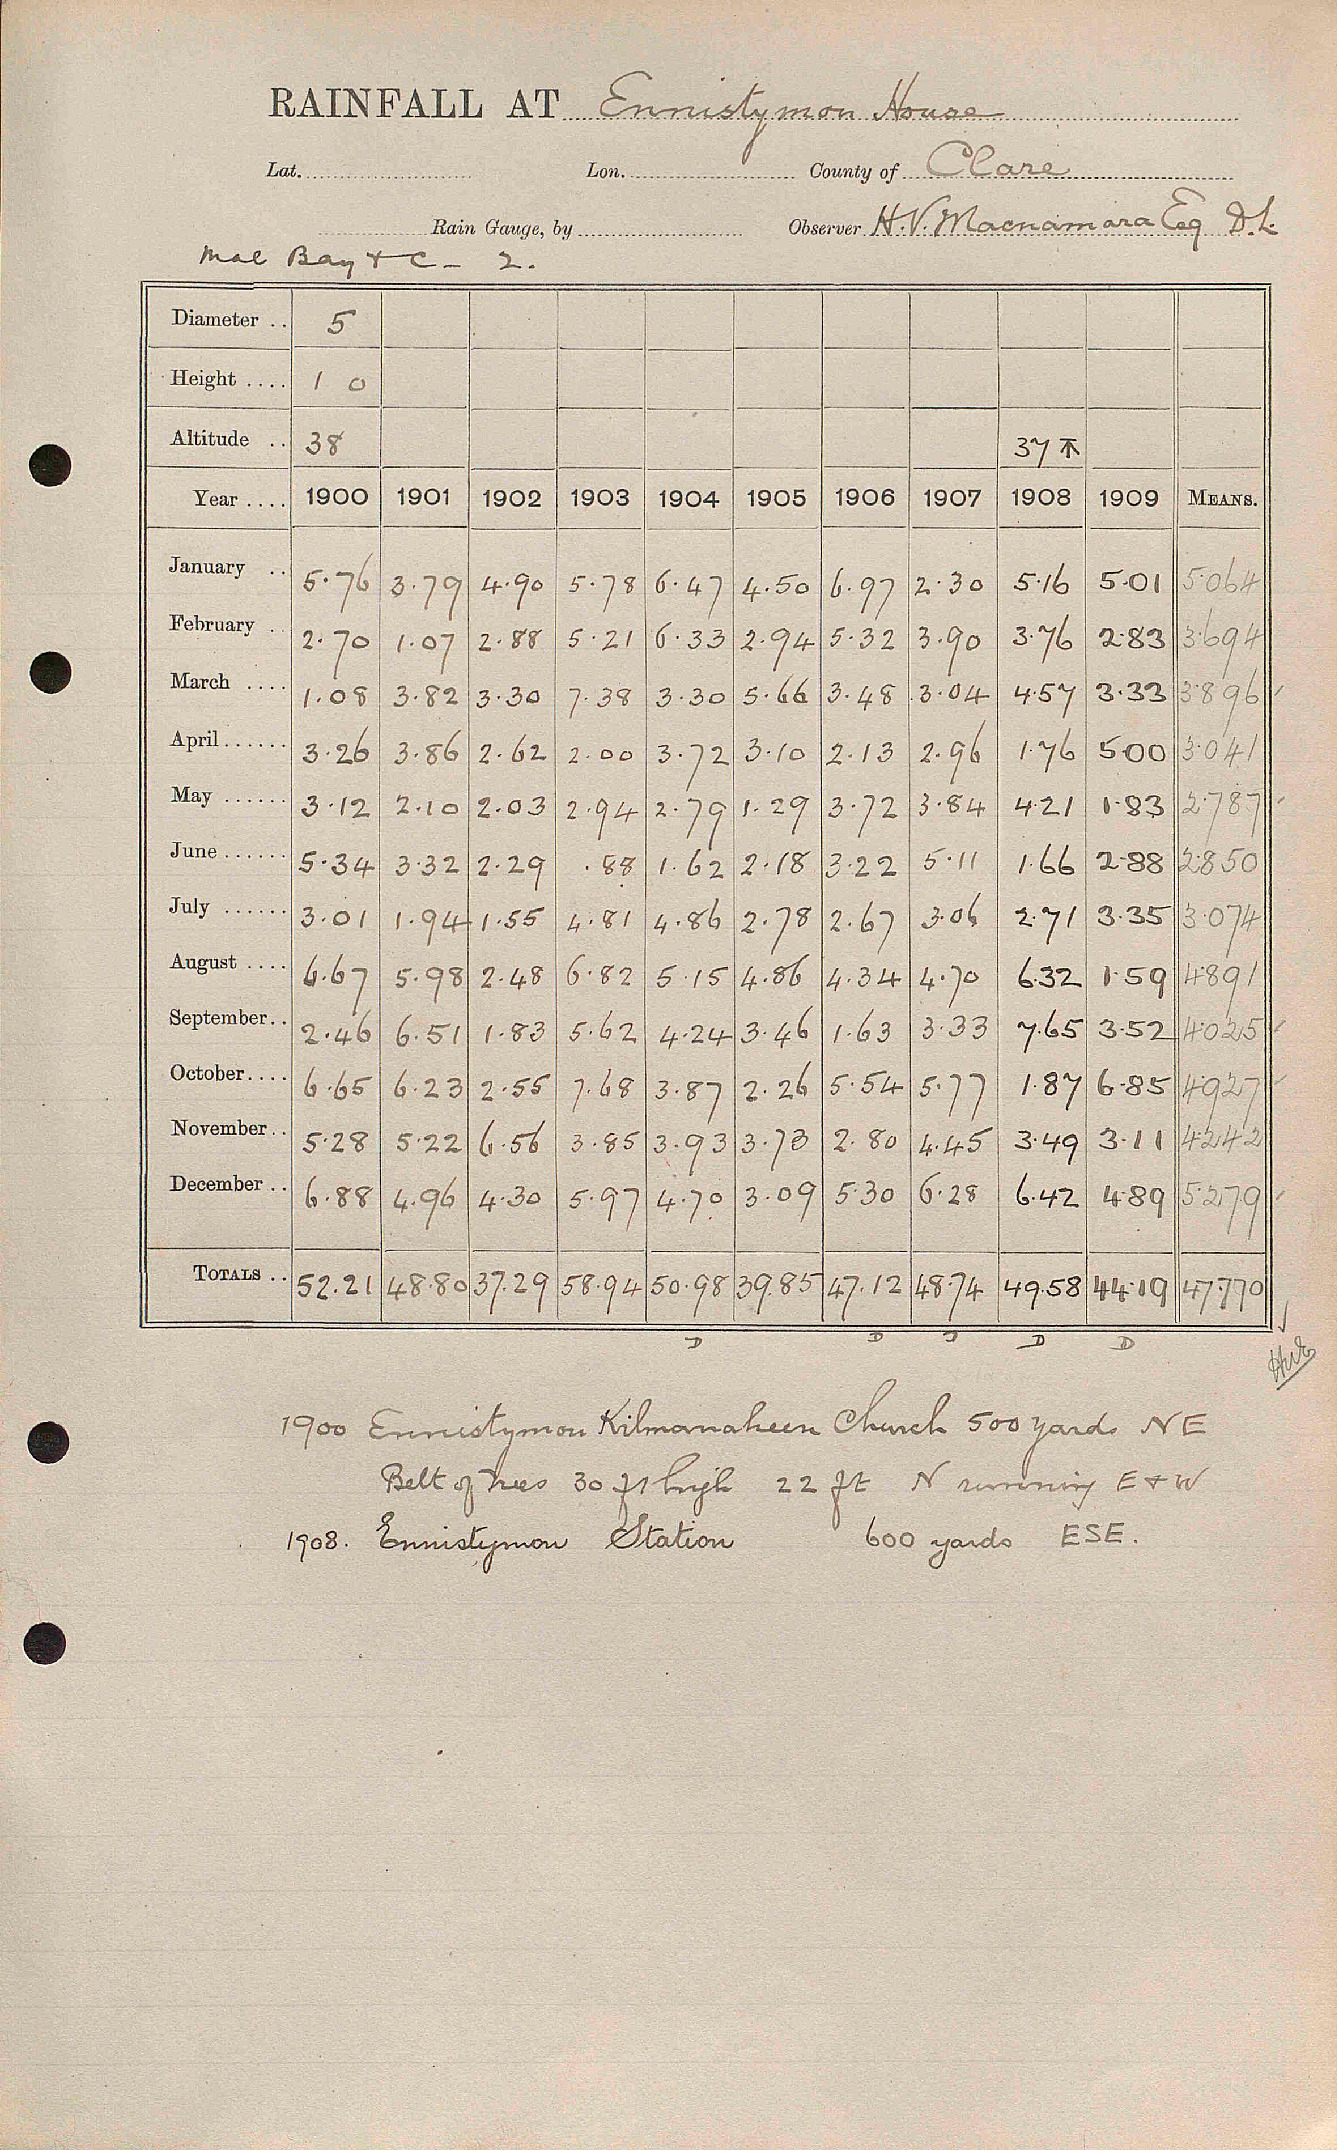 RAINFALL AT Ennistymon House
Lat. Lon. County of Clare
Rain Gauge, by Observer H.V. Macnamara Esq D.L.
Mal Bay & C - 2.
Diameter .. 5
Height .... 1 0
Altitude .. 38 37
Year .... 1900 1901 1902 1903 1904 1905 1906 1907 1908 1909 MEANS.
January .. 5.76 3.79 4.90 5.78 6.47 4.50 6.97 2.30 5.16 5.01 5.064
February .. 2.70 1.07 2.88 5.21 6.33 2.94 5.32 3.90 3.76 2.83 3.694
March .... 1.08 3.82 3.30 7.38 3.30 5.66 3.48 3.04 4.57 3.33 3.896
April ...... 3.26 3.86 2.62 2.00 3.72 3.10 2.13 2.96 1.76 5.00 3.041
May ...... 3.12 2.10 2.03 2.94 2.79 1.29 3.72 3.84 4.21 1.83 2.787
June ...... 5.34 3.32 2.29 .88 1.62 2.18 3.22 5.11 1.66 2.88 2.850
July ...... 3.01 1.94 1.55 4.81 4.86 2.78 2.67 3.06 2.71 3.35 3.074
August .... 6.67 5.98 2.48 6.82 5.15 4.86 4.34 4.70 6.32 1.59 4.891
September.. 2.46 6.51 1.83 5.62 4.24 3.46 1.63 3.33 7.65 3.52 4.025
October.... 6.65 6.23 2.55 7.68 3.87 2.26 5.54 5.77 1.87 6.85 4.927
November.. 5.28 5.22 6.56 3.85 3.93 3.73 2.80 4.45 3.49 3.11 4.242
December .. 6.88 4.96 4.30 5.97 4.70 3.09 5.30 6.28 6.42 4.89 5.279
TOTALS .. 52.21 48.80 37.29 58.94 50.98 39.85 47.12 48.74 49.58 44.19 47.770
D D D D D
1900 Ennistymon Kilmanaheen Church 500 yards NE
Belt of Trees 30 ft high 22 ft N running E & W
1908. Ennistymon Station 600 yards ESE.